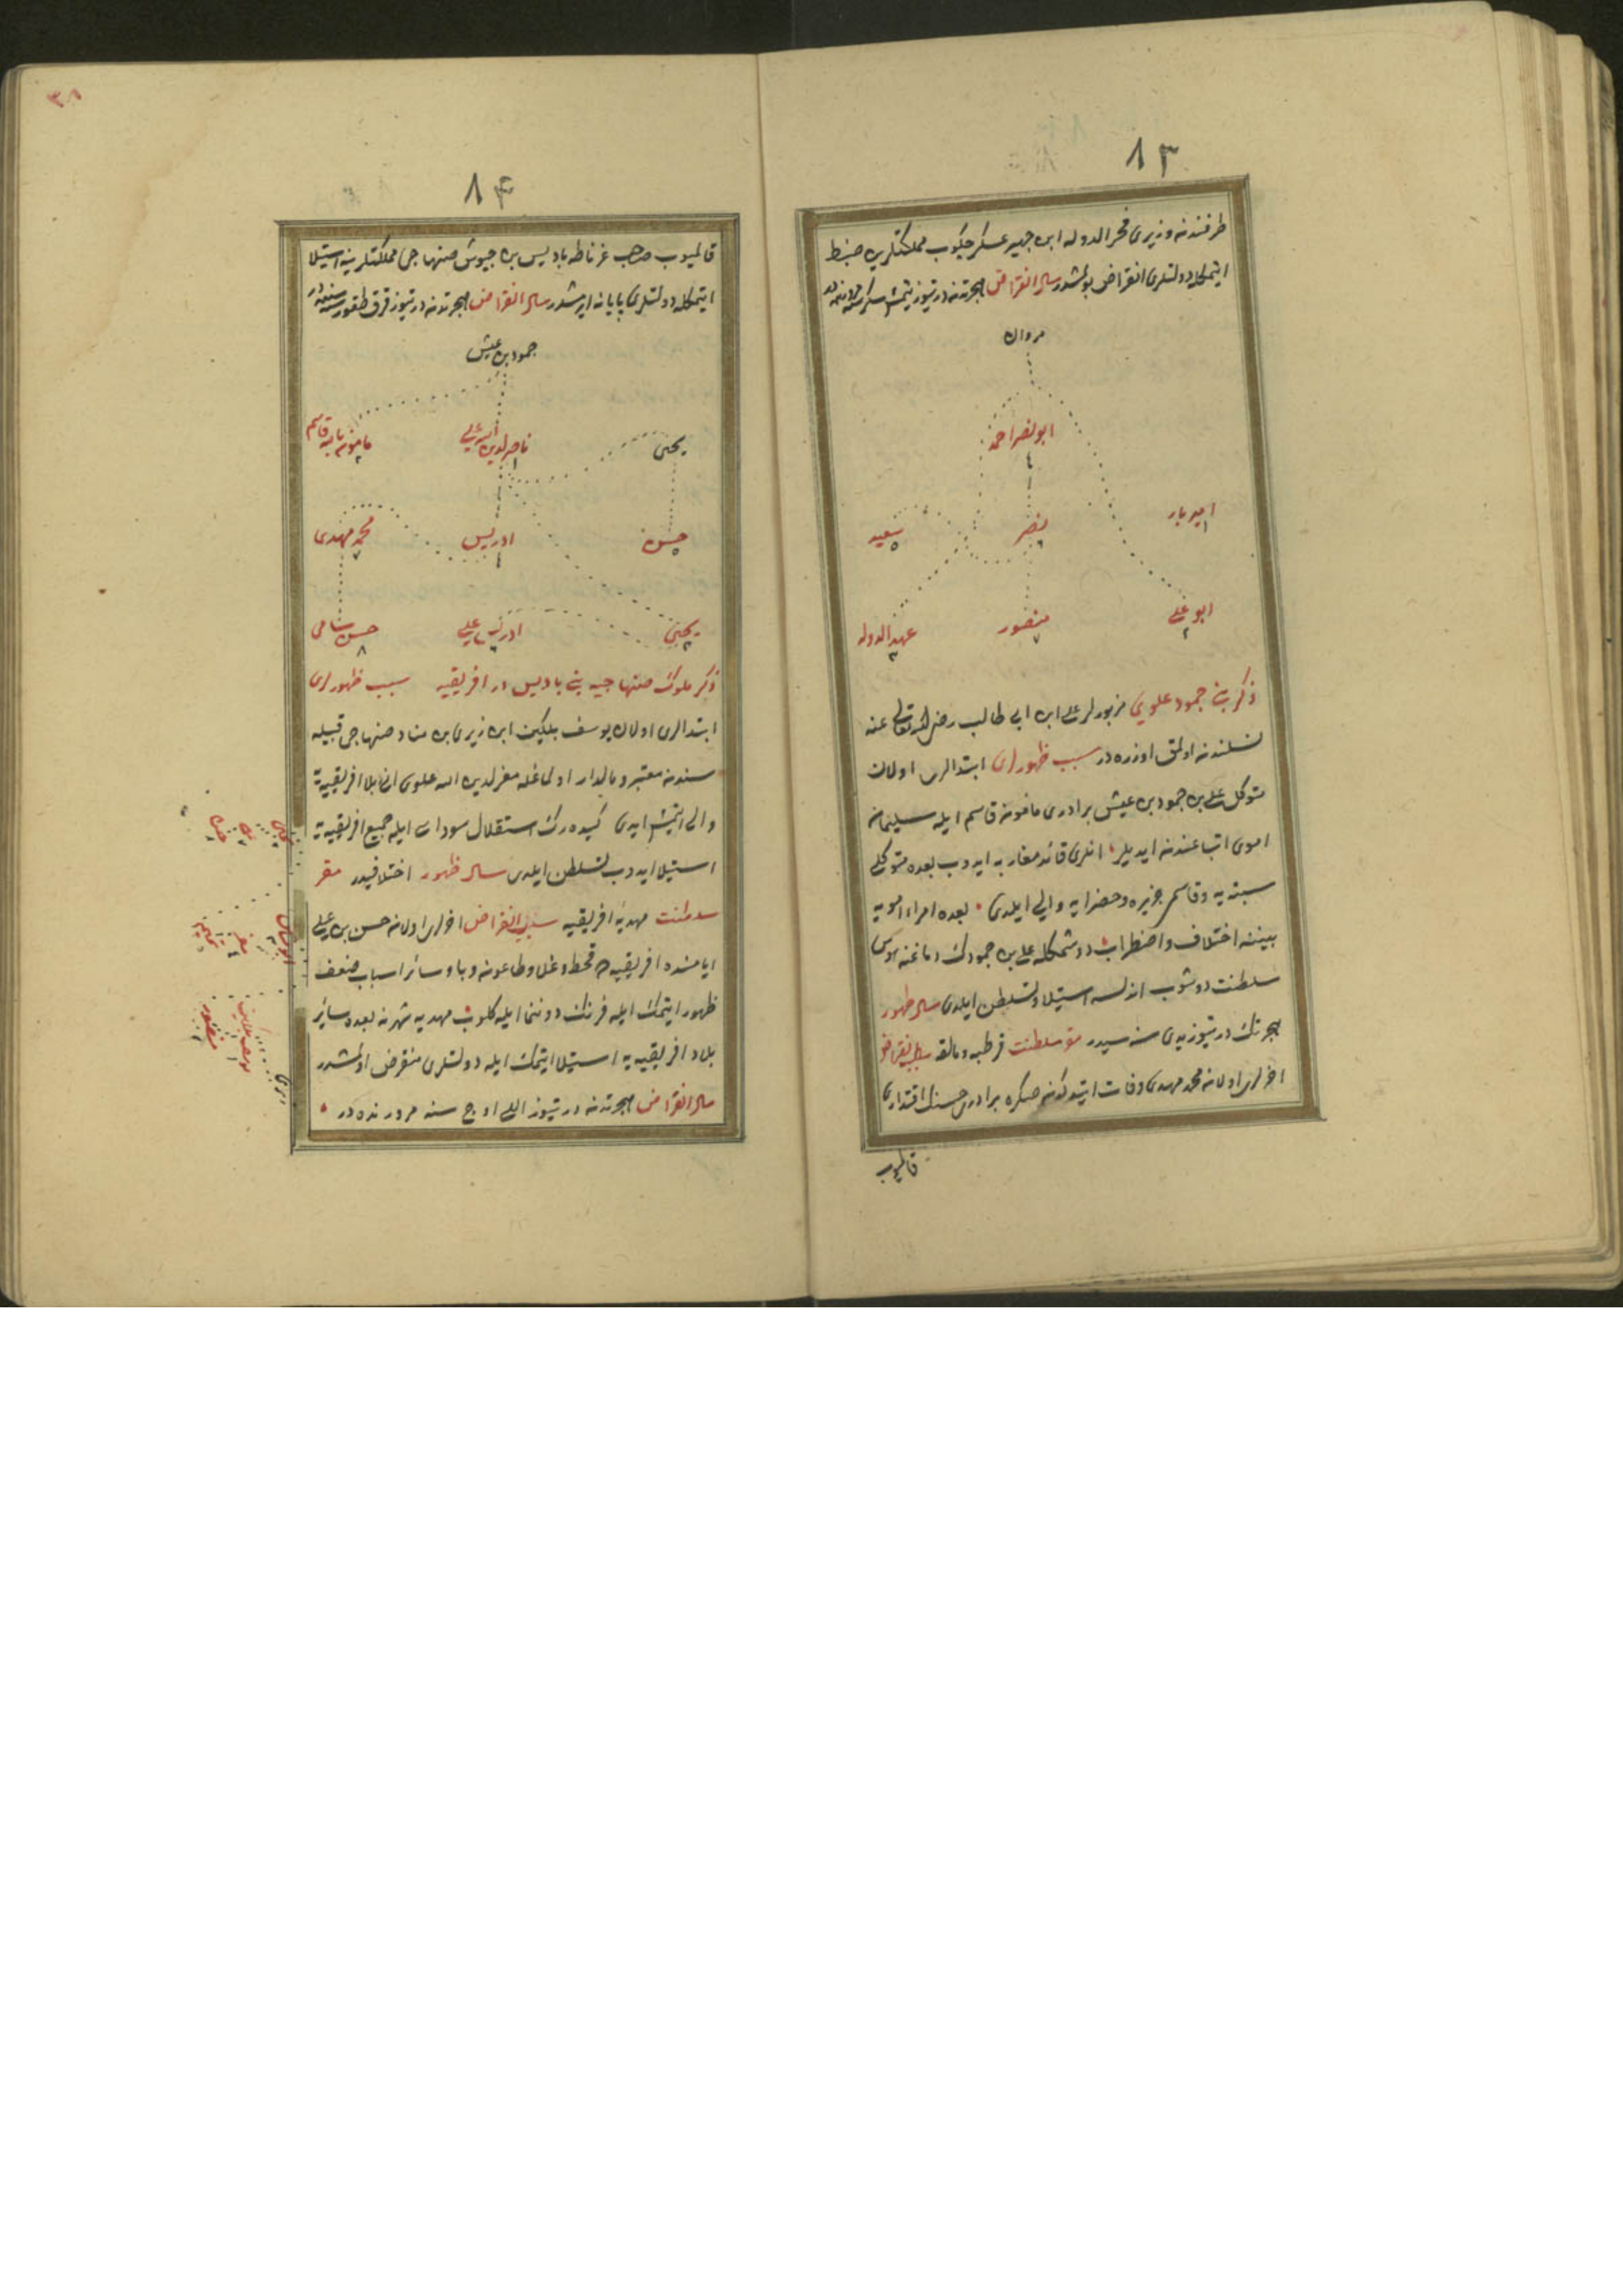 ٨٣
طرفندنه وزیری فخر الدوله ابن جهیر عسکر چکوب مملکتلرین ضبط
ایتمکله دولتلری انقراض بولمشدر سال انقراض هجرتدنه درتیوز یتمش سکز
مروان
ابو نصر احمد
امیر باز
نصر
سعید
ابو علی
منصور
مهد الدوله
ذکر بنی حمود علوی مزبورلر علی ابن ابی طالب رضی الله تعالی عنه
نسلندنه اولمق اوزره در سبب ظهورلری ابتدالری اولان
متوکل علی بن حمود بن عیش برادری مأمونه قاسم ایله سلیمانه
اموی اتباعندنه ایدیلر انلری قائد مغاربه ایدوب بعده متوکلی
سبته یه و قاسمی جزیره و حضرایه والی ایلدی بعده امراء امویه
بیننه اختلاف و اضطراب دوشمکله علی بن حمودک دماغنه هوس
سلطنت دوشوب اندلسه استیلا و تسلطن ایلدی سال ظهور
هجرتک درتیوز یدی سنه سیدر مقر سلطنت قرطبه و مالقه سبب انقراض
اخرلری اولانه محمد مهدی وفات ایتدکدنه صکره برادری حسنک اقتداری
قالمیوب
٨٤
٣٨
قالمیوب صاحب غرناطه بادیس بن حبوش صنهاجی مملکتلرینه استیلا
ایتمکله دولتلری پایانه ایرمشدر سال انقراض هجرتدنه درتیوز قرق طقوز سنه در
حمود بن عیش
یحیی
ناصر لدین الله علی
مامونه بالله قاسم
حسن
ادریس
محمد مهدی
یحیی
ادریس علی
حسن سامی
ذکر ملوک صنهاجیه بنی بادیس در افریقیه سبب ظهورلری
ابتدالری اولان یوسف بلکین ابن زیری بن مناد صنهاجی قبیله
سندنه معتبر و مالدار اولماغله معز لدین الله علوی انی بلاد افریقیه یه
والی ایتمش ایدی کیده رک استقلال سوداسی ایله جمیع افریقیه یه
استیلا ایدوب تسلطن ایلدی سال ظهور اختلافیدر مقر
سلطنت مهدیه افریقیه سبب انقراض اخرلری اولانه حسن بن علی
ایامنده افریقیه ده قحط و غلا و طاعونه و با و سائر اسباب ضعف
ظهور ایتمک ایله فرنک دوننما ایله کلوب مهدیه شهرنه بعده سائر
بلاد افریقیه یه استیلا ایتمک ایله دولتلری منقرض اولمشدر
سال انقراض هجرتدنه درتیوز اللی اوچ سنه مرورنده در
زیری
یوسف بلکین
منصور